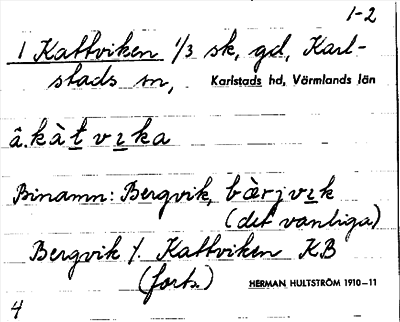 1-2
1 Kattviken 1/3 sk, gd, Karl-
stads sn, Karlstads hd, Värmlands län
å. kàt vɪka
Binamn: Bergvik, bæ̀rjvɪk
(det vanliga)
Bergvik /. Kattviken KB
(forts.) HERMAN HULTSTRÖM 1910–11
4